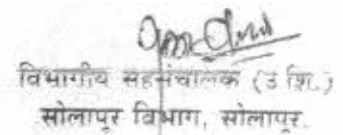 विभागीय सहसंचालक (उ शि.)
सोलापूर विभाग, सोलापूर.